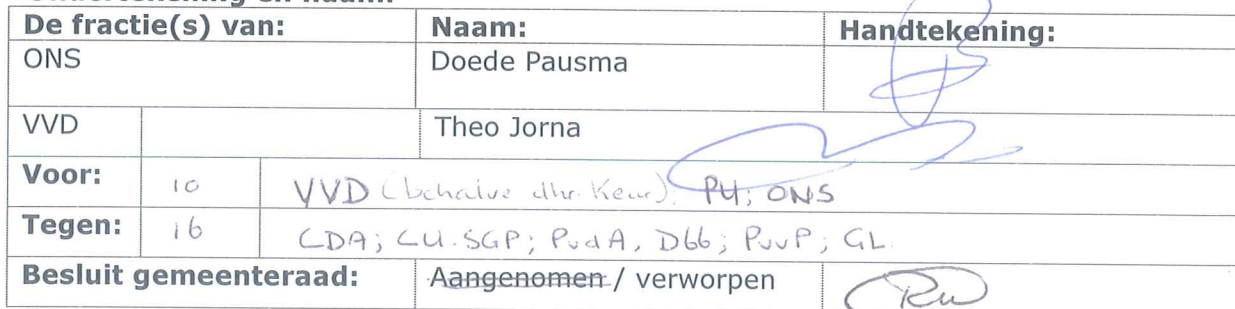 De fractie(s) van: Naam: Handtekening:
ONS Doede Pausma
VVD Theo Jorna
Voor: 10 VVD (behalve dhr. Keur); P4; ONS
Tegen: 16 CDA; CU.SGP; PvdA, D66; PvvP; GL.
Besluit gemeenteraad: Aangenomen / verworpen